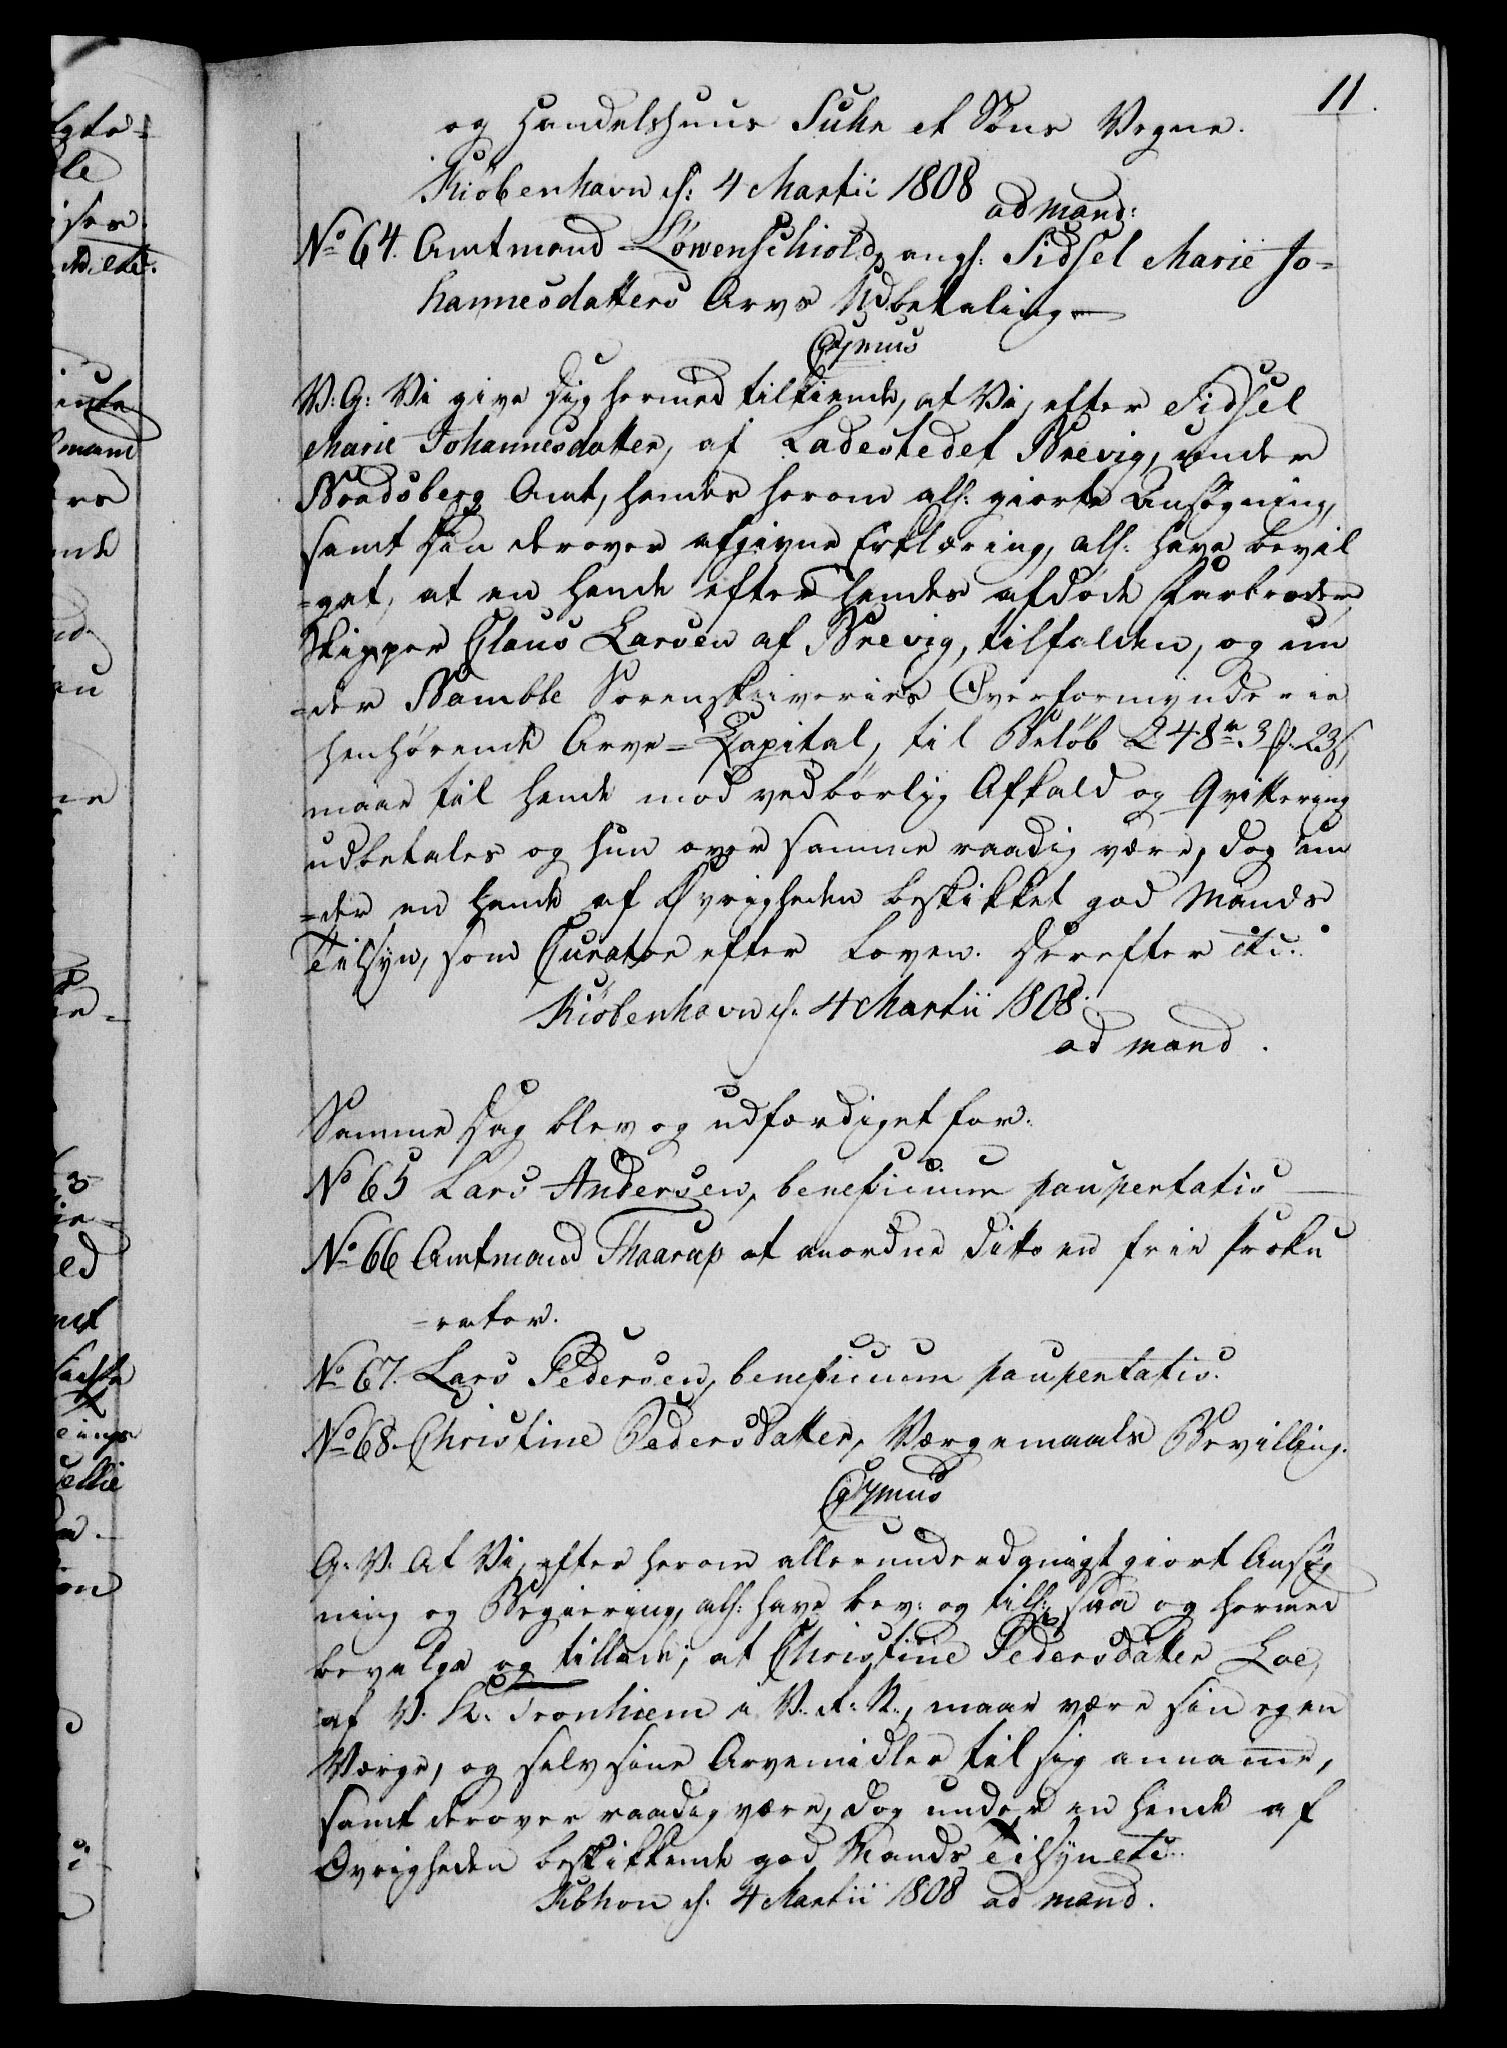 11.
og Handelshuus Suhr et Söns Vegne.
Kiöbenhavn d: 4 Martii 1808
ad mand:
No 64. Amtmand Löwenschiold, angh: Sidsel Marie Jo=
hannesdatters Arvs Udbetaling
C 7mus
V: G: Vi give Dig hermed tilkiende, at Vi, efter Sidsel
Marie Johannesdatter, af Ladestedet Brevig, under
Bradsberg Amt, hendes herom alh: giorte Ansøgning,
samt Din derover afgivne Erklæring, alh: have bevil
=get, at en hende efter hendes afdöde Farbroder,
Skipper Claus Larsen af Brevig, tilfalden, og un
=der Bamble Sorenskriveries Overformynderie
henhørende Arve=Capital, til Beløb 248 rd. 3 ß. 23 s,
maae til hende mod vedbørlig Afkald og Qvittering
udbetales og hun over samme raadig være, dog un
=der en hende af Øvrigheden beskikket god Mands
Tilsyn, som Curator efter Loven. Derefter etc:
Kiöbenhavn d: 4 Martii 1808.
ad mand.
Samme Dag blev og udfærdiget for:
No 65 Lars Andersen, beneficium paupertatis
No 66 Amtmand Thaarup at anordne Ditto en frie Proku
=rator.
No 67. Lars Pedersen, beneficium paupertatis.
No 68. Christine Pedersdatter, Værgemaals Bevilling.
C 7mus
G: V: At Vi, efter herom allerunderdanigst giort Ansøg
ning og Begiering, alh: have bev: og tilh:, saa og hermed
bevilge og tillade, at Christine Pedersdatter Loe,
af V. K. Tronhiem i V. R. N., maae være sin egen
Værge, og selv sine Arvemidler til sig annamme,
samt derover raadig være, dog under en hende af
Øvrigheden beskikkende god Mands Tilsyn etc:
Kbhvn d: 4 Martii 1808 ad mand.